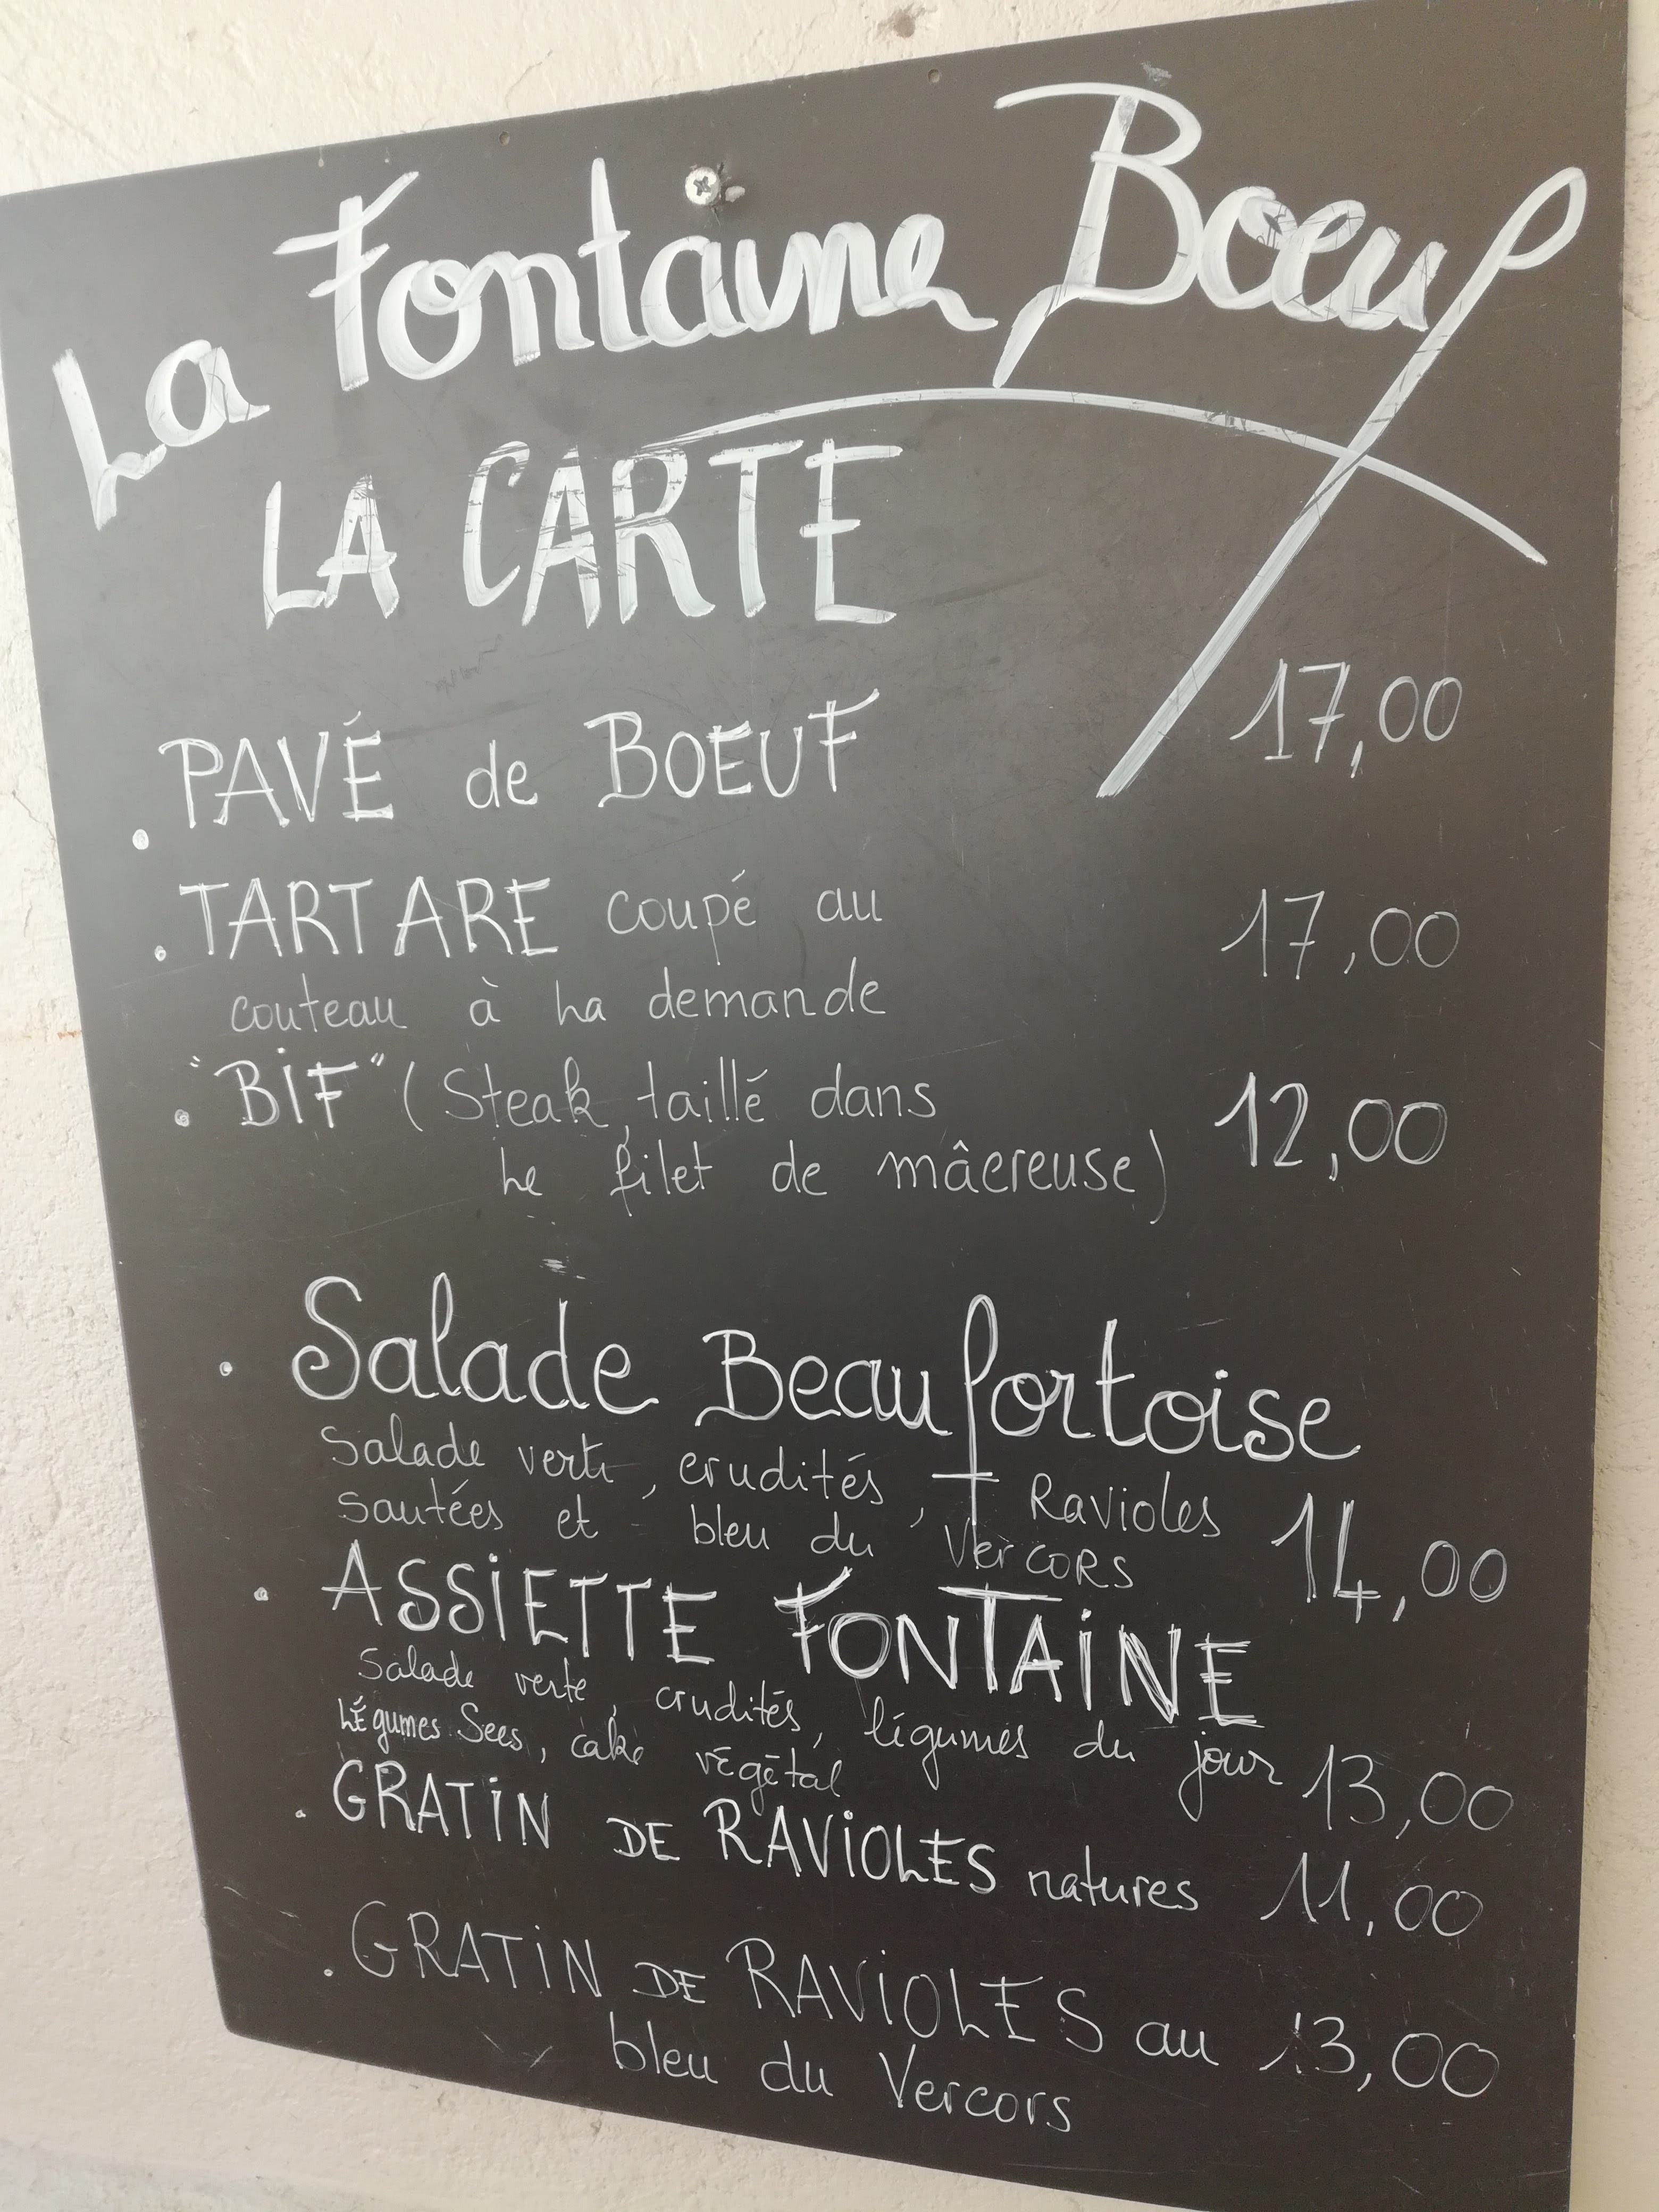 La Fontaine Boeuf
LA CARTE
. PAVÉ de BOEUF 17,00
. TARTARE coupé au 17,00
couteau à la demande
. "BIF" (Steak taillé dans 12,00
le filet de mâcreuse)
. Salade Beaufortoise
Salade verte, crudités, Ravioles
sautées et bleu du Vercors 14,00
. ASSIETTE FONTAINE
Salade verte, crudités, légumes du jour 13,00
Légumes Secs, cake végétal
. GRATIN DE RAVIOLES natures 11,00
. GRATIN DE RAVIOLES au 13,00
bleu du Vercors